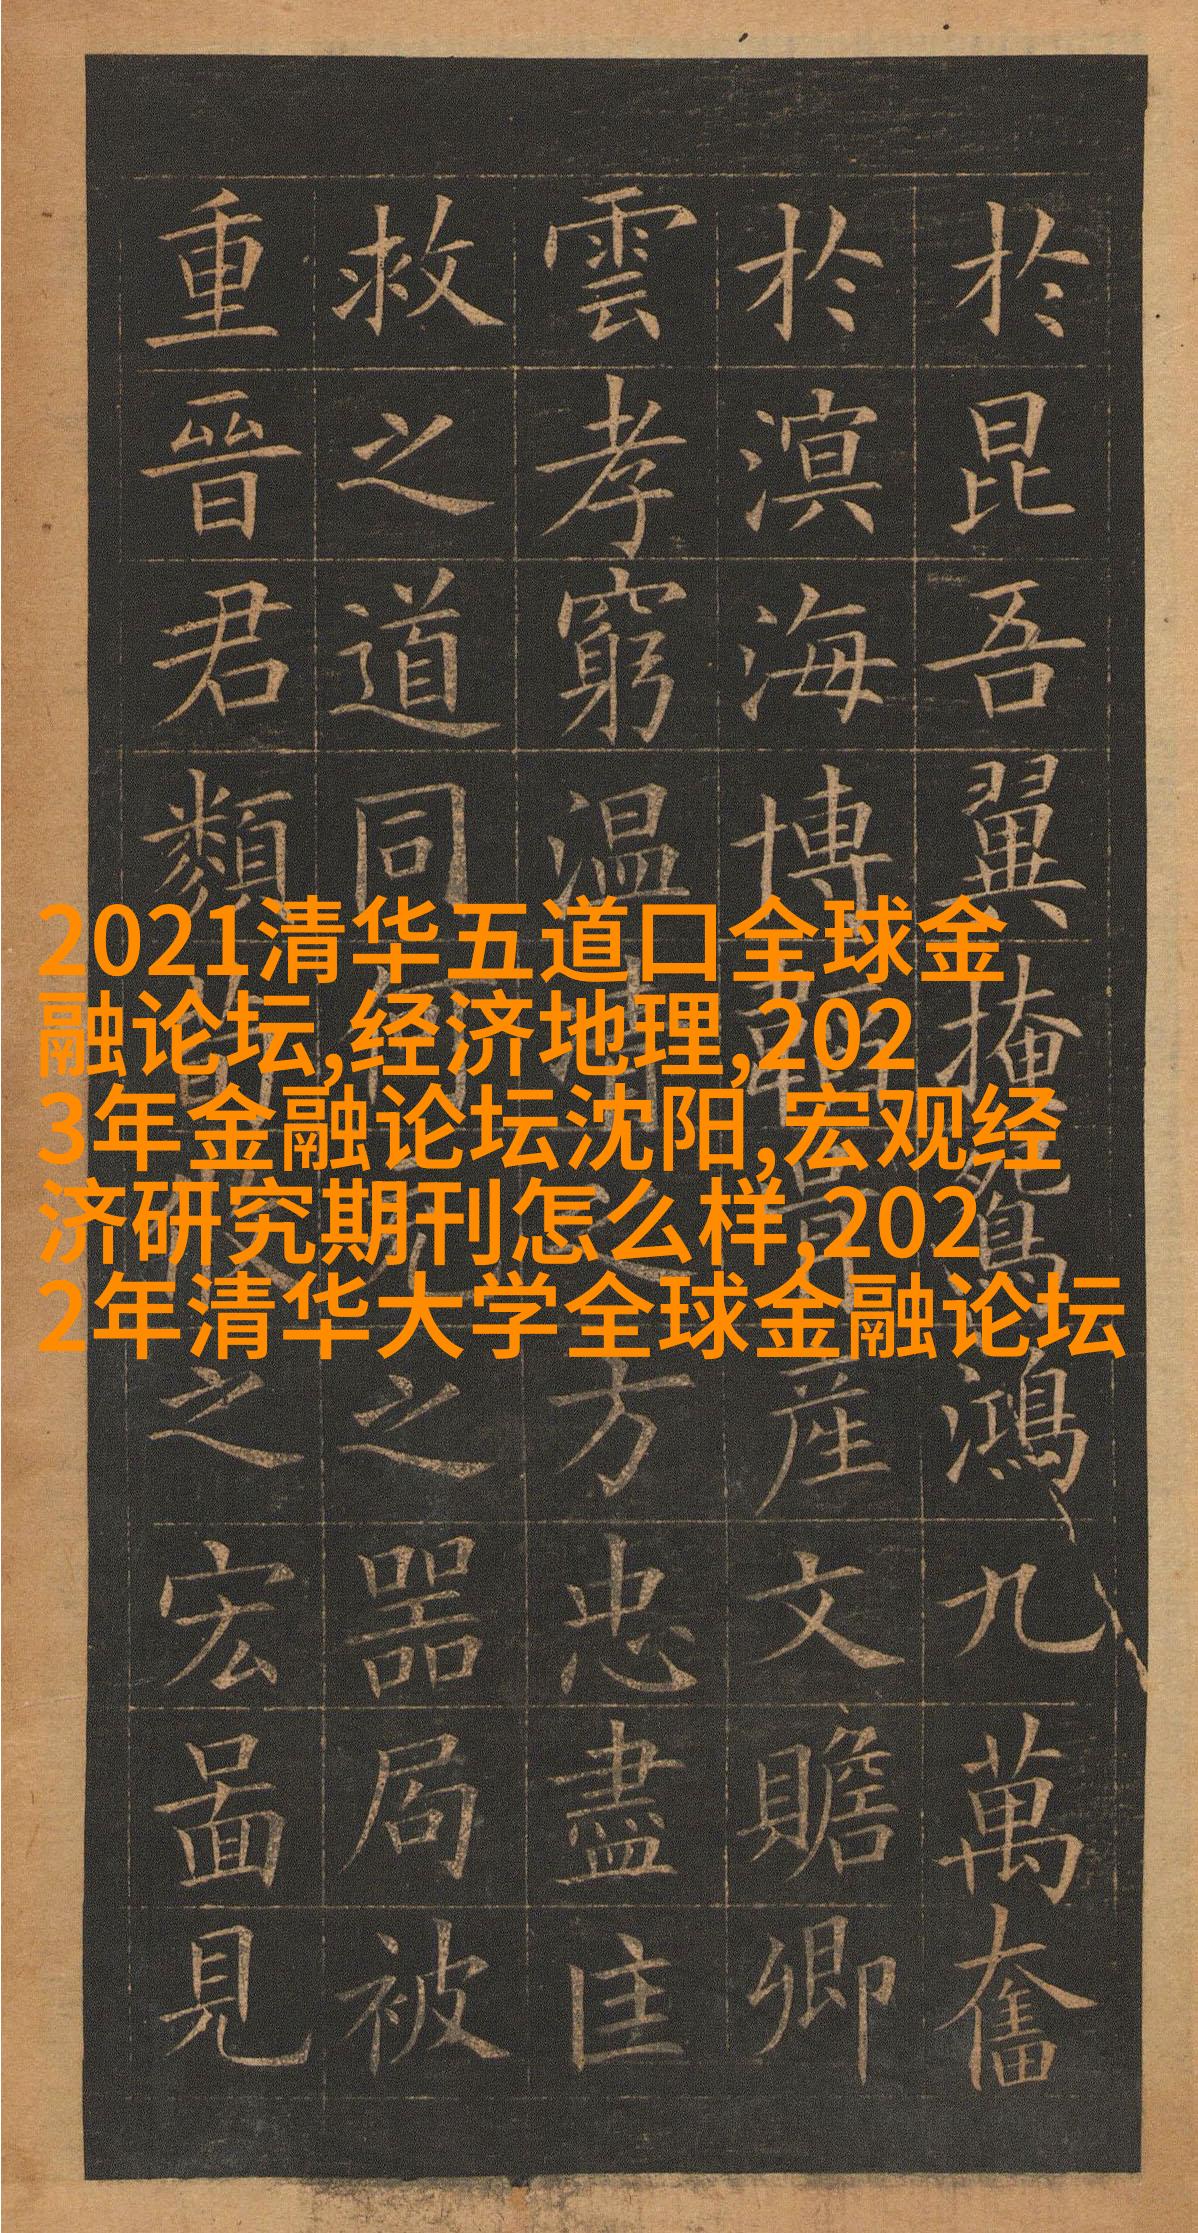 於昆吾翼掩鵷鴻九萬奮
於溟海博產文贍卿
雲孝窮温清之方忠盡匡
救之道同何充之器局被
重晉君類荀攸之宏啚見
2021清华五道口全球金
融论坛,经济地理,202
3年金融论坛沈阳,宏观经
济研究期刊怎么样,202
2年清华大学全球金融论坛